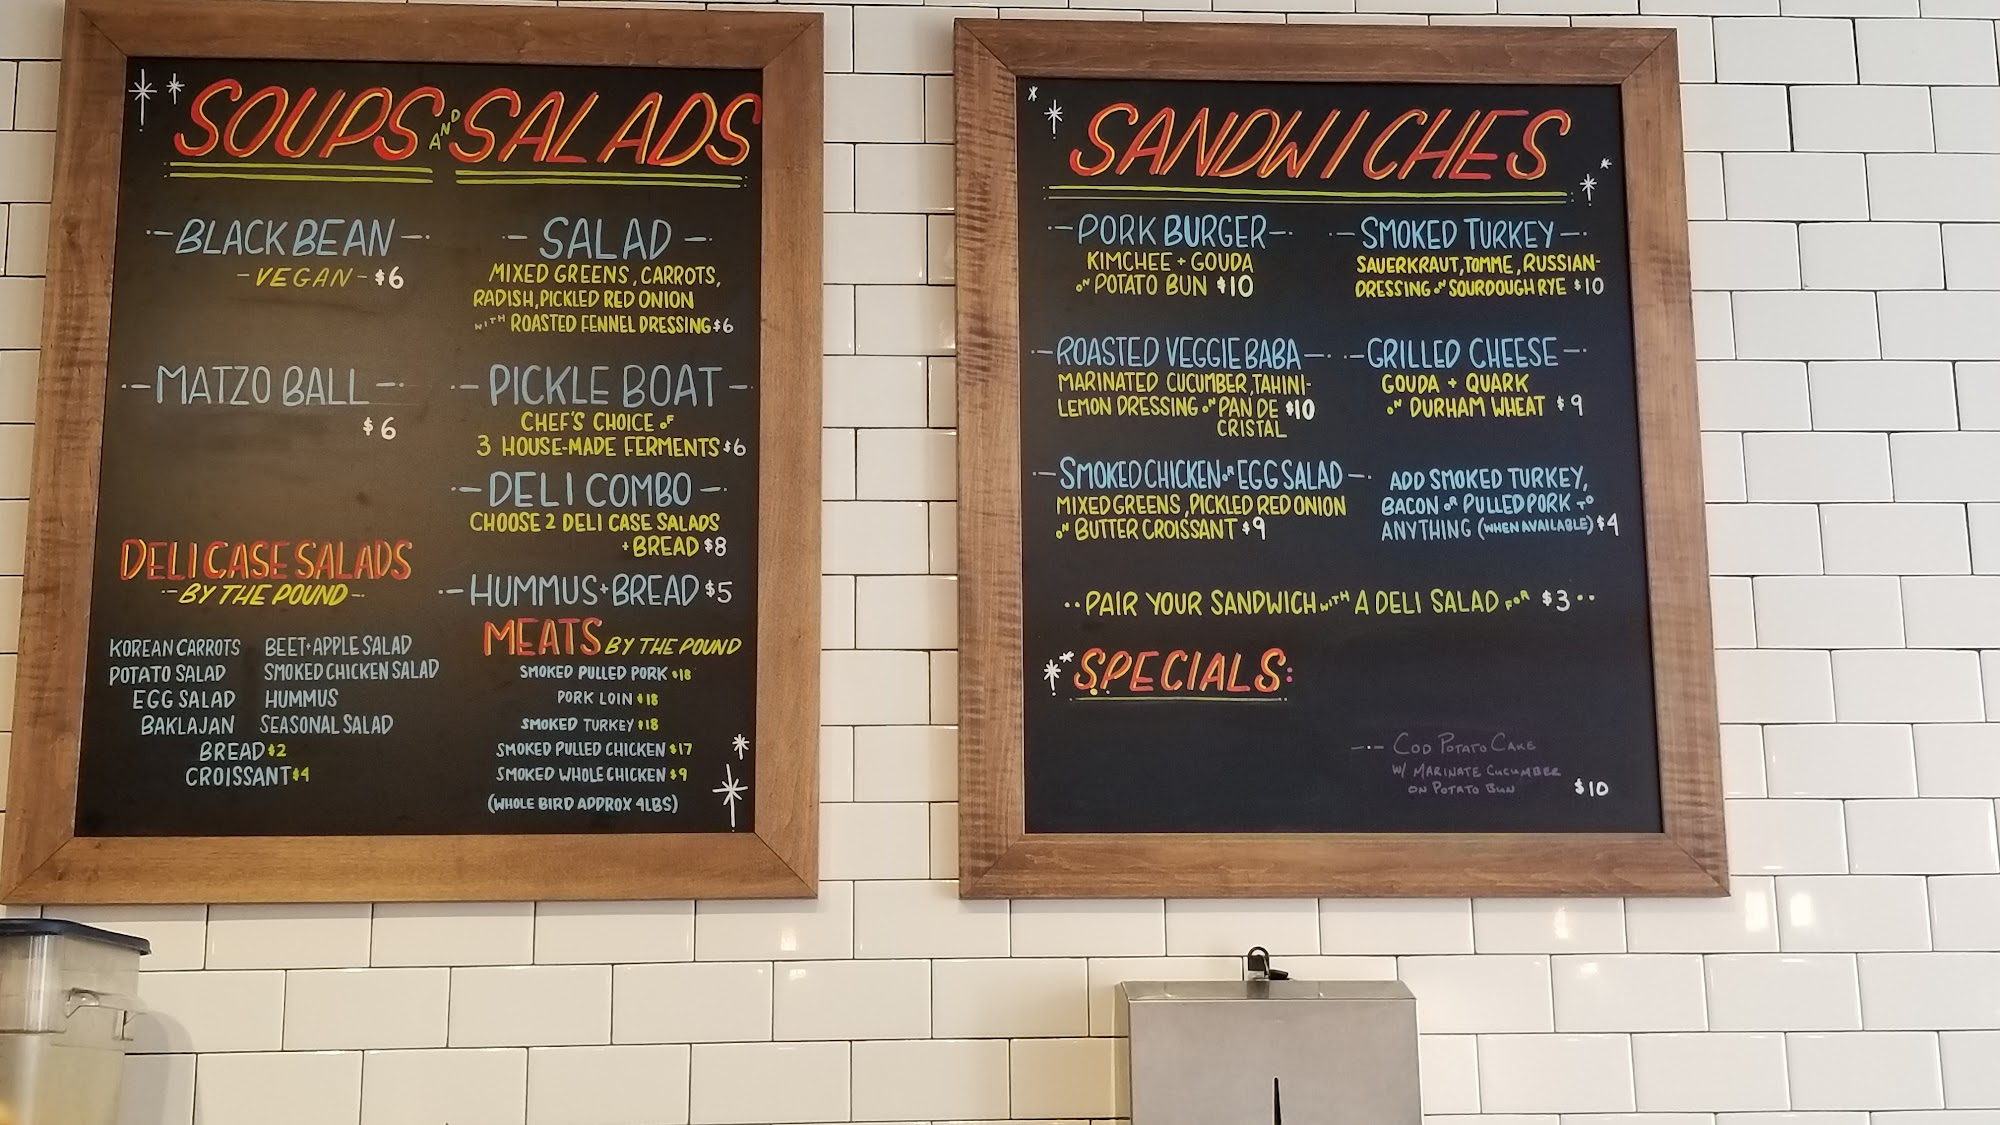 SOUPS AND SALADS
BLACK BEAN
VEGAN - $6
MATZO BALL
$6
SALAD
MIXED GREENS, CARROTS,
RADISH, PICKLED RED ONION
WITH ROASTED FENNEL DRESSING $6
PICKLE BOAT
CHEF'S CHOICE OF
3 HOUSE-MADE FERMENTS $6
DELI COMBO
CHOOSE 2 DELI CASE SALADS
+ BREAD $8
HUMMUS + BREAD $5
DELI CASE SALADS
BY THE POUND
KOREAN CARROTS BEET + APPLE SALAD
POTATO SALAD SMOKED CHICKEN SALAD
EGG SALAD HUMMUS
BAKLAJAN SEASONAL SALAD
BREAD $2
CROISSANT $4
MEATS BY THE POUND
SMOKED PULLED PORK $18
PORK LOIN $18
SMOKED TURKEY $18
SMOKED PULLED CHICKEN $17
SMOKED WHOLE CHICKEN $9
(WHOLE BIRD APPROX 4LBS)
SANDWICHES
PORK BURGER
KIMCHEE + GOUDA
ON POTATO BUN $10
SMOKED TURKEY
SAUERKRAUT, TOMME, RUSSIAN-
DRESSING ON SOURDOUGH RYE $10
ROASTED VEGGIE BABA
MARINATED CUCUMBER, TAHINI-
LEMON DRESSING ON PAN DE $10
CRISTAL
GRILLED CHEESE
GOUDA + QUARK
ON DURHAM WHEAT $9
SMOKED CHICKEN OR EGG SALAD
MIXED GREENS, PICKLED RED ONION
ON BUTTER CROISSANT $9
ADD SMOKED TURKEY,
BACON OR PULLED PORK TO
ANYTHING (WHEN AVAILABLE) $4
PAIR YOUR SANDWICH WITH A DELI SALAD FOR $3
SPECIALS:
COD POTATO CAKE
W/ MARINATE CUCUMBER
ON POTATO BUN $10